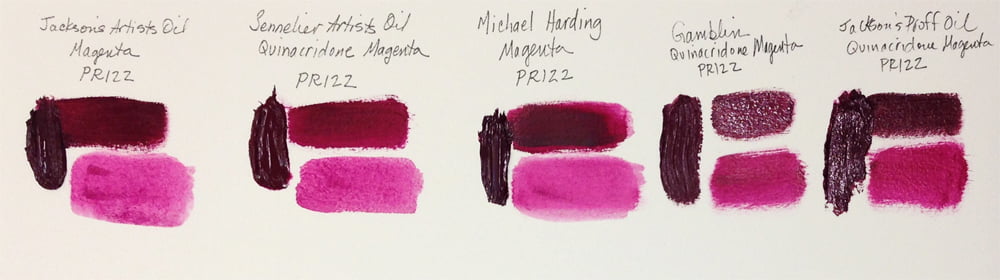 Jackson's Artists Oil
Magenta
PR122
Sennelier Artists Oil
Quinacridone Magenta
PR122
Michael Harding
Magenta
PR122
Gamblin
Quinacridone Magenta
PR122
Jackson's Proff Oil
Quinacridone Magenta
PR122